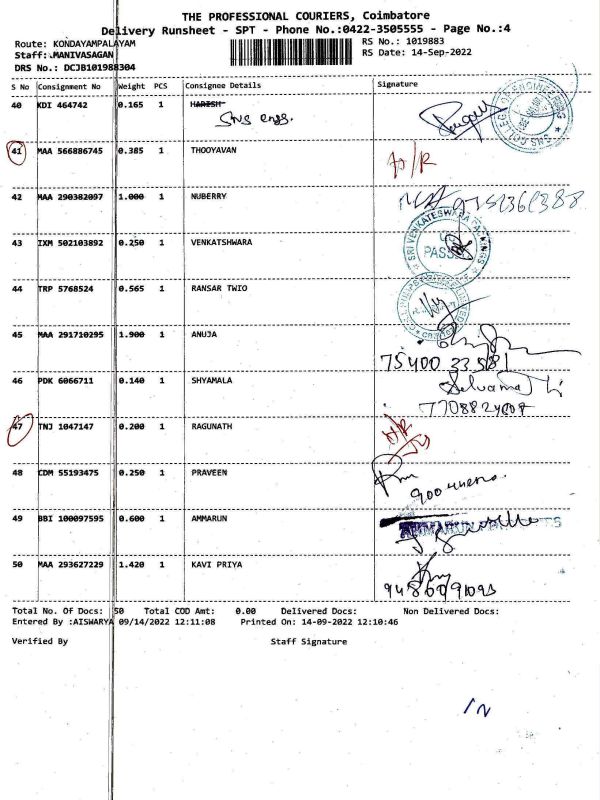 THE PROFESSIONAL COURIERS, Coimbatore
Delivery Runsheet - SPT - Phone No.:0422-3505555 - Page No.:4
Route: KONDAYAMPALAYAM RS No.: 1019883
Staff:.MANIVASAGAN RS Date: 14-Sep-2022
DRS No.: DCJB101988304
S No Consignment No Weight PCS Consignee Details Signature
40 KDI 464742 0.165 1 HARISH
SNS
41 MAA 566886745 0.385 1 THOOYAVAN
42 MAA 290382097 1.000 1 NUBERRY
43 IXM 502103892 0.250 1 VENKATSHWARA
SRI VENKATESWARA PACKINGS
PASSED
44 TRP 5768524 0.565 1 RANSAR TWIO
45 MAA 291710295 1.900 1 ANUJA
75400 33581
46 PDK 6066711 0.140 1 SHYAMALA
47 TNJ 1047147 0.200 1 RAGUNATH
48 CDM 55193475 0.250 1 PRAVEEN
49 BBI 100097595 0.600 1 AMMARUN
AMMARUN
50 MAA 293627229 1.420 1 KAVI PRIYA
Total No. Of Docs: 50 Total COD Amt: 0.00 Delivered Docs: Non Delivered Docs:
Entered By :AISWARYA 09/14/2022 12:11:08 Printed On: 14-09-2022 12:10:46
Verified By Staff Signature